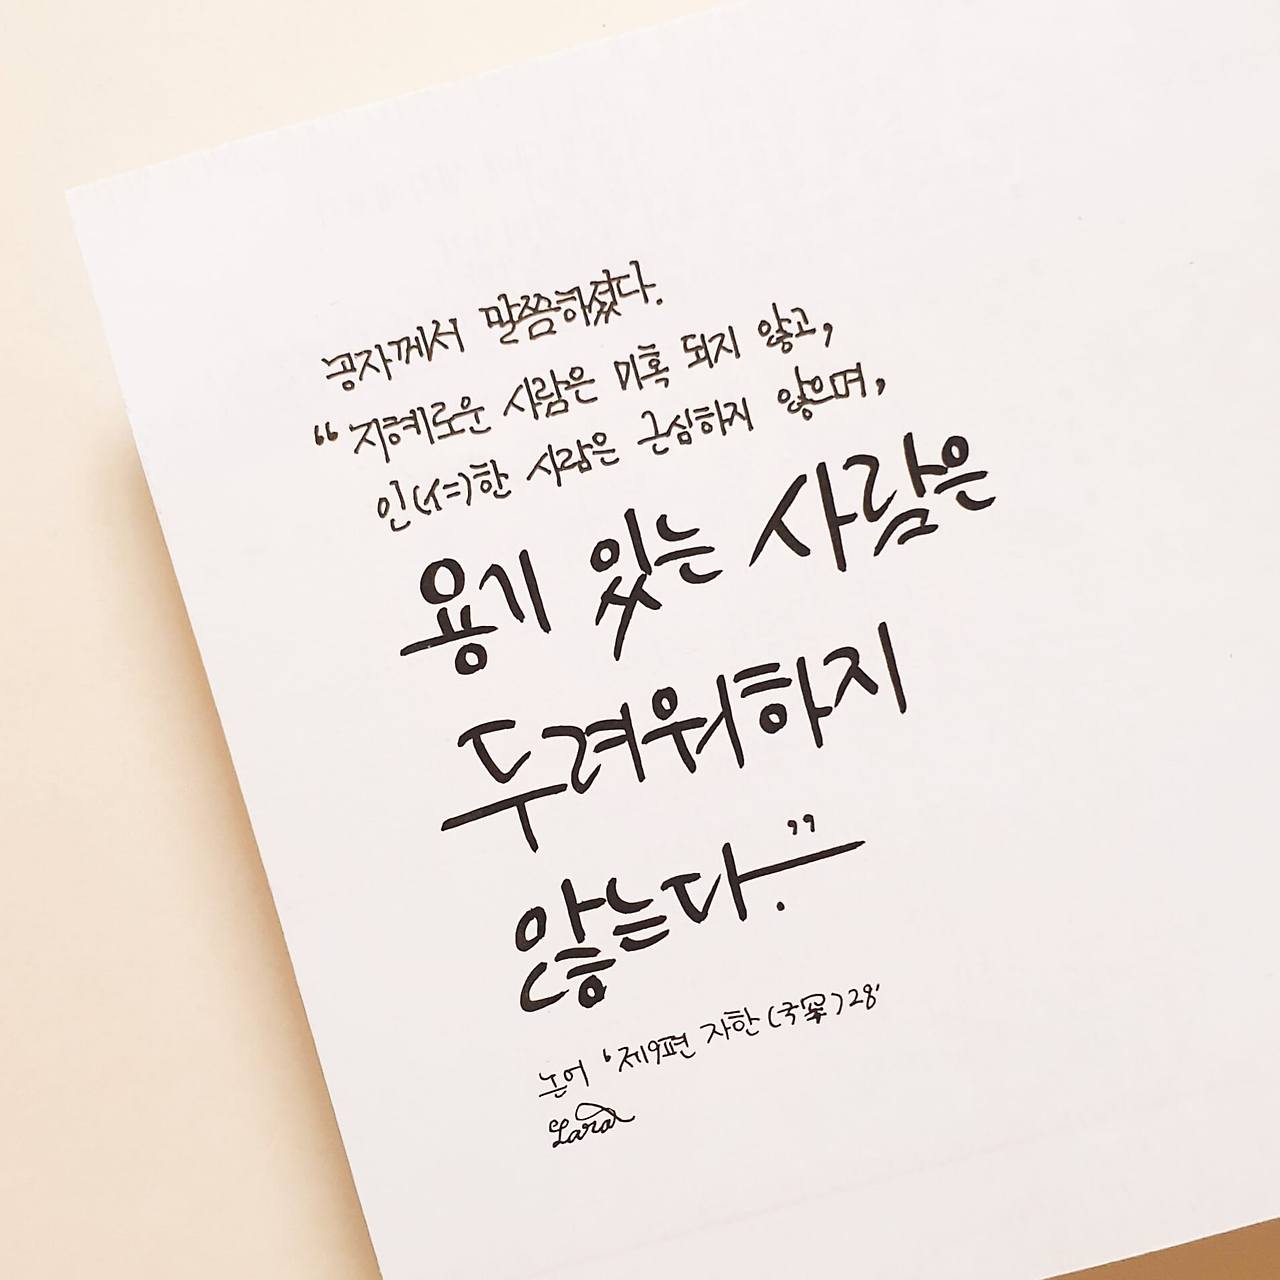 공자께서 말씀하셨다.
“지혜로운 사람은 미혹 되지 않고,
인(仁)한 사람은 근심하지 않으며,
용기 있는 사람은
두려워하지
않는다.”
논어 ‘제9편 자한( )28’
Lara